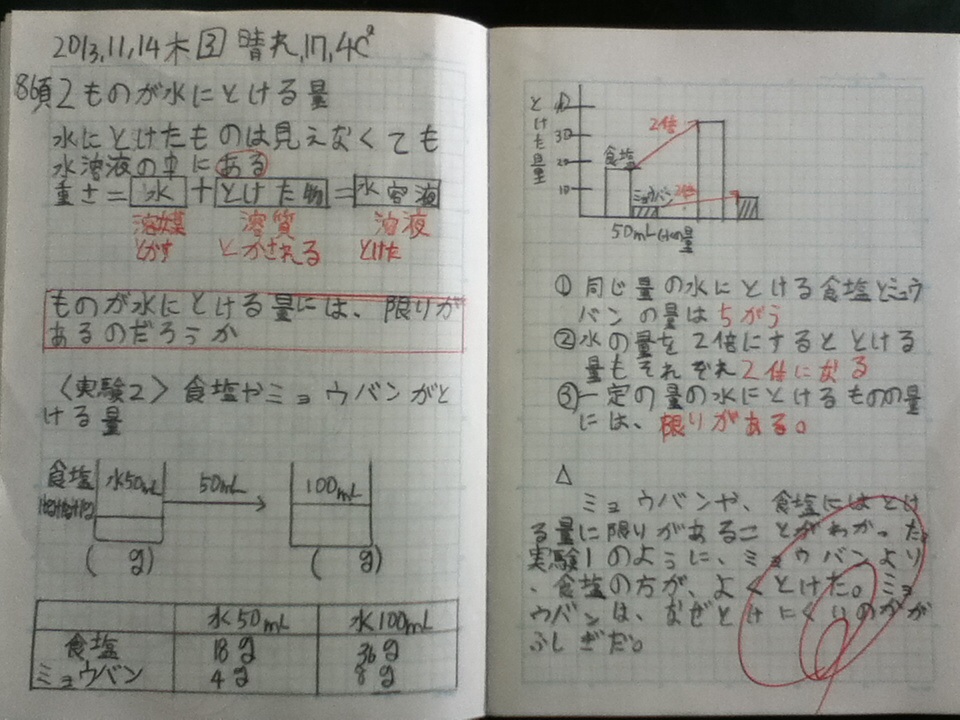 2013,11,14木 3 晴れ,17,4℃
86頁 2 ものが水にとける量
水にとけたものは見えなくても
水溶液の中にある
重さ=水+とけた物=水容液
溶媒 溶質 溶液
とかす とかされる とけた
ものが水にとける量には、限りが
あるのだろうか
〈実験2〉食塩やミョウバンがと
ける量
食塩 水50mL 50mL 100mL
( g) ( g)
水50mL 水100mL
食塩 18g 36g
ミョウバン 4g 8g
とけた量
40
30
20
10
食塩
ミョウバン
2倍
2倍
50mL
①同じ量の水にとける食塩とミョウ
バンの量はちがう
②水の量を2倍にするととける
量もそれぞれ2倍になる
③一定の量の水にとけるものの量
には、限りがある。
△
ミョウバンや、食塩にはとけ
る量に限りがあることがわかった。
実験1のように、ミョウバンより
、食塩の方が、よくとけた。ミョ
ウバンは、なぜとけにくいのかが
ふしぎだ。